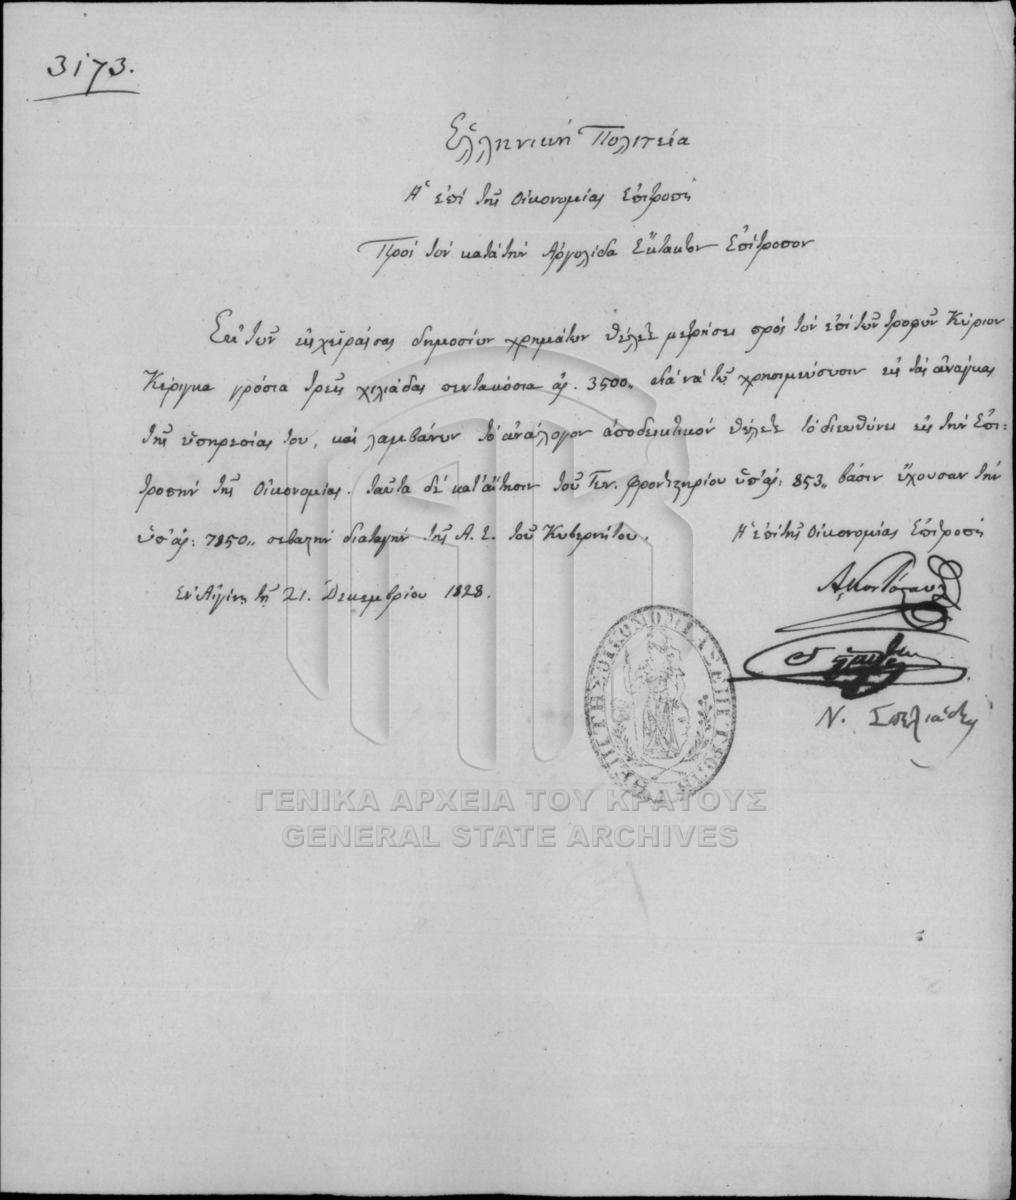 3173.
Ἑλληνική Πολιτεία
Ἡ ἐπί τῆς Οἰκονομίας Ἐπιτροπή
Πρός τόν κατά τήν Ἀργολίδα Ἔκτακτον Ἐπίτροπον
Ἐκ τῶν εἰς χεῖράς σας δημοσίων χρημάτων θέλετε μετρήσει πρός τόν ἐπί τῶν τροφῶν Κύριον
γρόσια τρεῖς χιλιάδας πεντακόσια ἀρ. 3500,, διά νά τῷ χρησιμεύσωσιν εἰς τάς ἀνάγκας
τῆς ὑπηρεσίας του, καί λαμβάνων τό ἀνάλογον ἀποδεικτικόν θέλετε τό διευθύνει εἰς τήν Ἐπι=
τροπήν τῆς Οἰκονομίας. ταῦτα δέ κατ' αἴτησιν τοῦ Γεν. Φροντιστηρίου ὑπ' ἀρ: 853,, βάσιν ἔχουσαν τήν
ὑπ' ἀρ: 7850,, σεβαστήν διαταγήν τῆς Α. Ε. τοῦ Κυβερνήτου.
Ἡ ἐπί τῆς Οἰκονομίας Ἐπιτροπή
Ἐν Αἰγίνῃ τῇ 21. Δεκεμβρίου 1828.
Α. Κοντόσταυλος
Ν. Σπηλιάδης
Η ΕΠΙ ΤΗΣ ΟΙΚΟΝΟΜΙΑΣ ΕΠΙΤΡΟΠΗ
ΓΕΝΙΚΑ ΑΡΧΕΙΑ ΤΟΥ ΚΡΑΤΟΥΣ
GENERAL STATE ARCHIVES